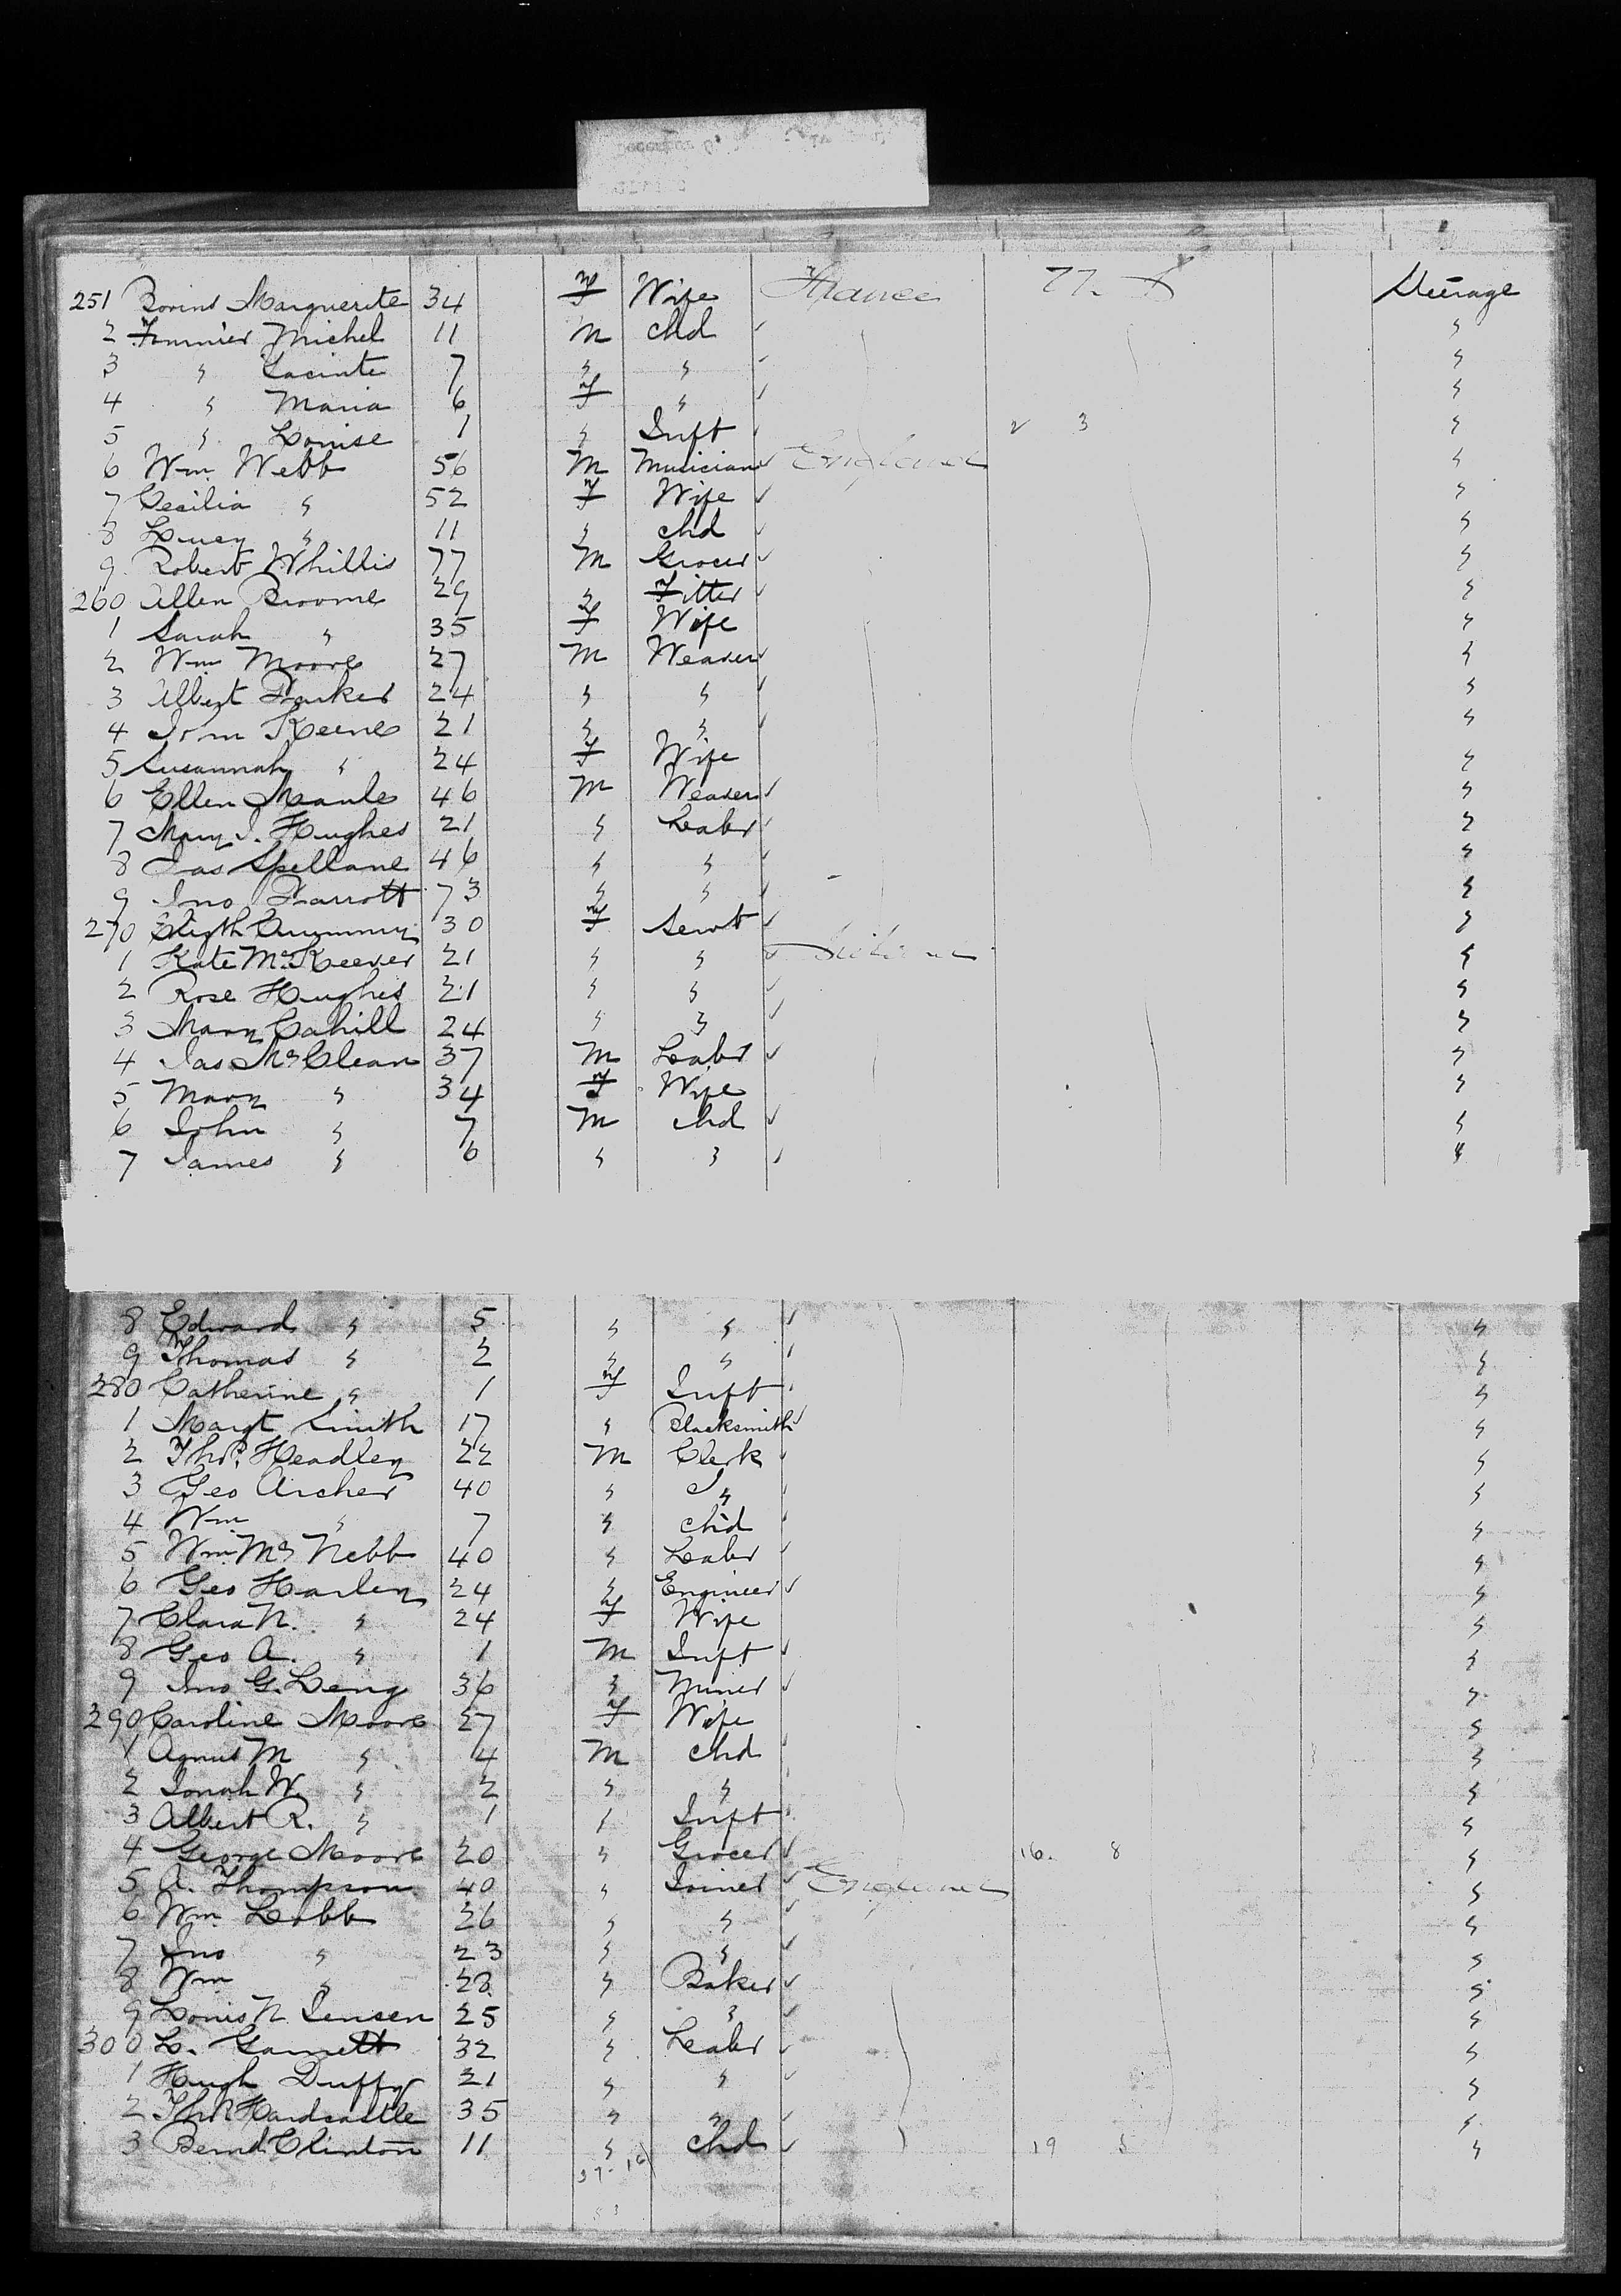 251 Bovins Marguerite 34 F Wife France 77. S Steerage
2 Fournier Michel 11 M chd "
3 " Lacinte 7 " " "
4 " Maria 6 F " "
5 " Louise 1 " Inft 3 "
6 Wm. Webb 56 M Musician England "
7 Cecilia " 52 F Wife "
8 Lucy " 11 " chd "
9 Robert Whillis 77 M Grocer "
260 Allen Broome 29 " Fitter "
1 Sarah " 35 F Wife "
2 Wm Moore 27 M Weaver "
3 Albert Parker 24 " " "
4 John Keene 21 " " "
5 Susannah " 24 F Wife "
6 Ellen Maule 46 M Weaver "
7 Mary J. Hughes 21 " Labr "
8 Jas Spellane 46 " " "
9 Jno Parrott 73 " " "
270 30 F Servt "
1 Kate McKeever 21 " " "
2 Rose Hughes 21 " " "
3 Mary Cahill 24 " " "
4 Jas McClean 37 M Labr "
5 Mary " 34 F Wife "
6 John " 7 M chd "
7 James " 6 " " "
8 Edward " 5 " " "
9 Thomas " 2 " " "
280 Catherine " 1 F Inft "
1 Margt Smith 17 " Blacksmith "
2 Thos. Headley 22 M Clerk "
3 Geo Archer 40 " " "
4 Wm " 7 " chd "
5 Wm Mc Nebb 40 " Labr "
6 Geo Harley 24 " Engineer "
7 Clara N. " 24 F Wife "
8 Geo A. " 1 M Inft "
9 Jno G. Leng 36 " Miner "
290 Caroline Moore 27 F Wife "
1 Agnes M " 4 M chd "
2 Jonah W. " 2 " " "
3 Albert R. " 1 " Inft "
4 George Moore 20 " Grocer 16. 8 "
5 A. Thompson 40 " Joiner England "
6 Wm. Lobb 26 " " "
7 Jno " 23 " " "
8 Wm " 28 " Baker "
9 Louis N. Jensen 25 " " "
300 L. Garnett 32 " Labr "
1 Hugh Duffy 21 " " "
2 Thos Hardcastle 35 " " "
3 Bernd. Clinton 11 " chd 19 5 "